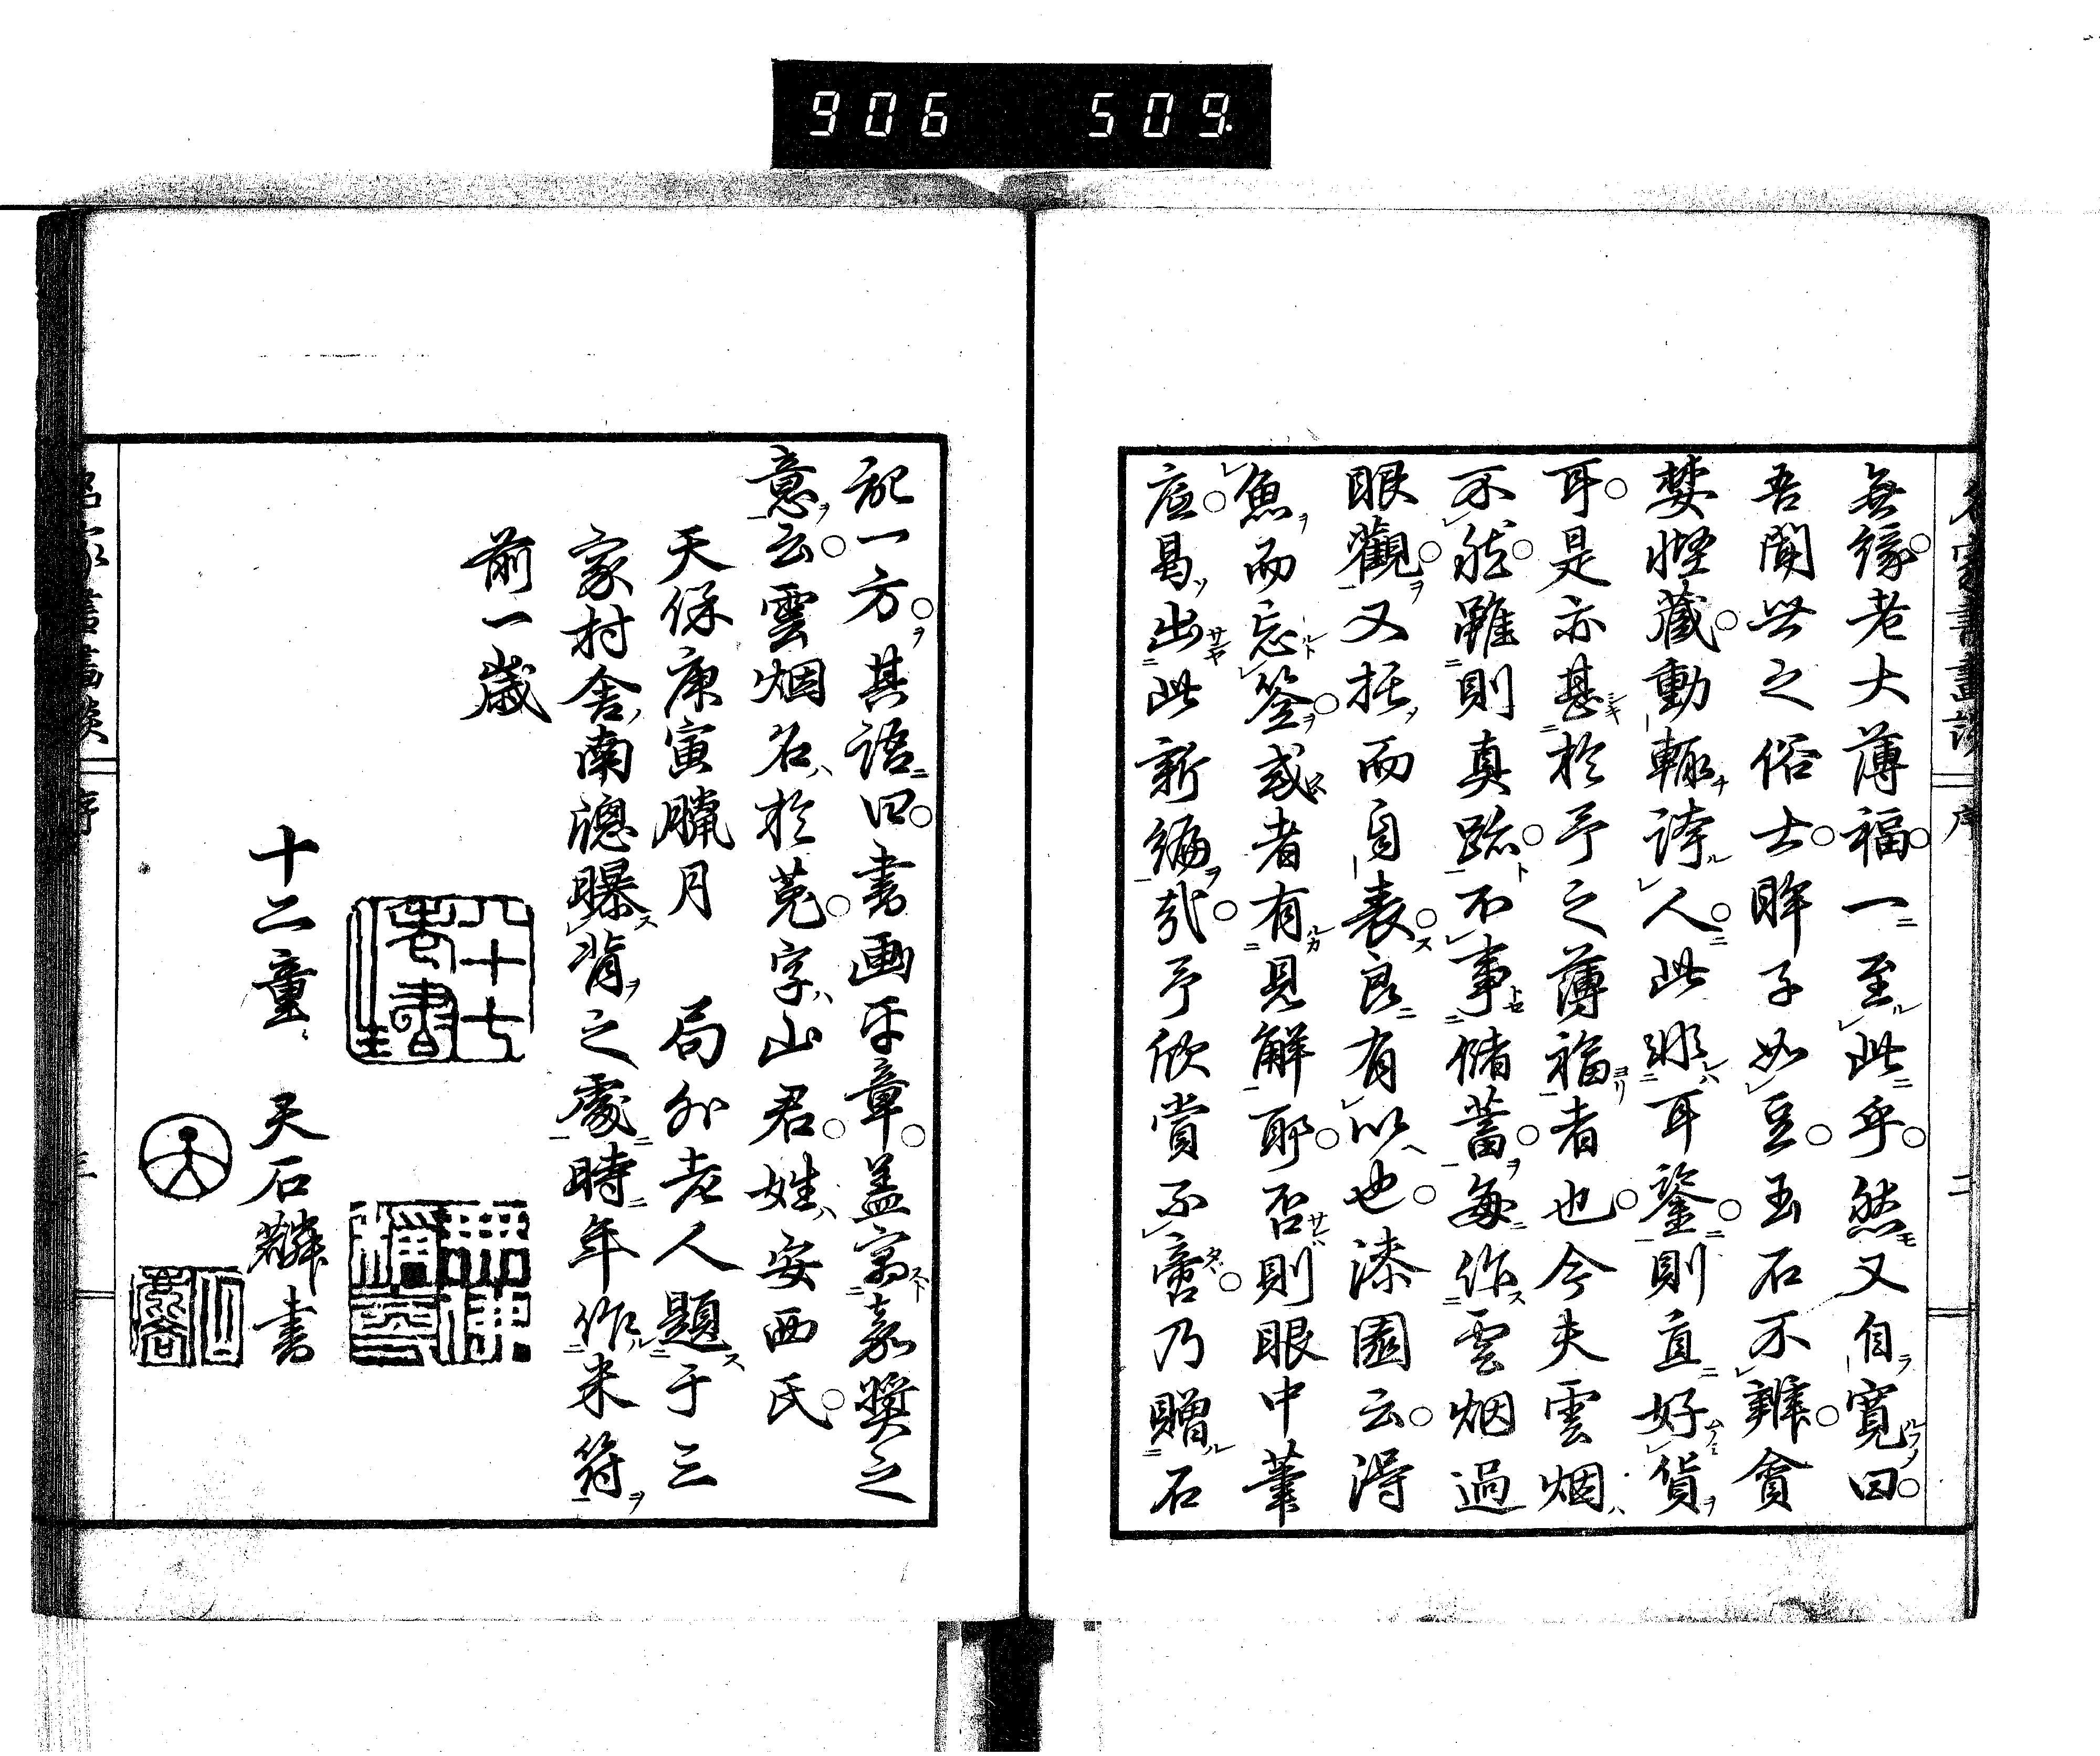 906 509
名家書畫談 序 二
無緣老大薄福一至此乎然又自寬曰
吾聞世之俗士眸子如豆玉石不辨貪
婪慳藏動輒誇人此非耳鑒則直好貨
耳是亦甚於予之薄福者也今夫雲烟
不然雖則真跡不事儲蓄每作雲烟過
眼觀又拈而自表良有以也漆園云得
魚而忘筌或者有見解耶否則眼中葷
血曷出此新編哉予欣賞不啻乃贈石
印一方其語曰書画平章蓋寓嘉奬之
意云雲烟名於菟字山君姓安西氏
天保庚寅臘月 局外老人題于三
家村舍南窻曝背之處時年作米符
前一歲
八十七老書
無佛
十二童 天石麟書
序 三